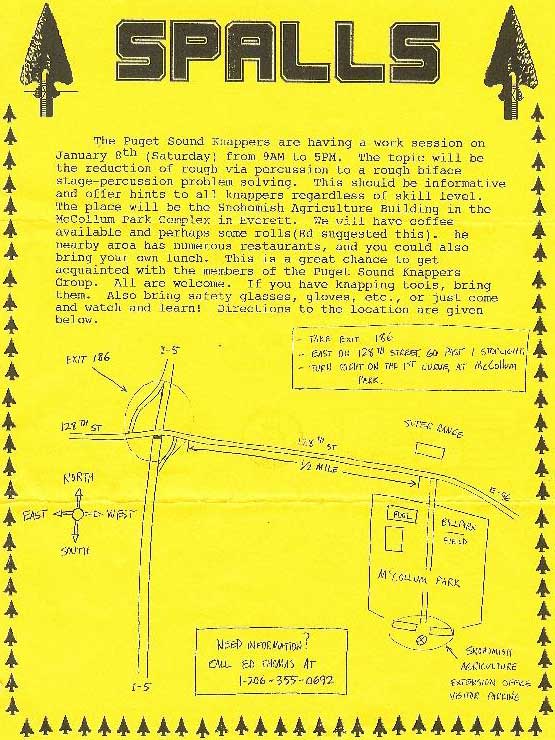 SPALLS
The Puget Sound Knappers are having a work session on
January 8th (Saturday) from 9AM to 5PM. The topic will be
the reduction of rough via percussion to a rough biface
stage-percussion problem solving. This should be informative
and offer hints to all knappers regardless of skill level.
The place will be the Snohomish Agriculture Building in the
McCollum Park Complex in Everett. We will have coffee
available and perhaps some rolls(Ed suggested this). he
nearby area has numerous restaurants, and you could also
bring your own lunch. This is a great chance to get
acquainted with the members of the Puget Sound Knappers
Group. All are welcome. If you have knapping tools, bring
them. Also bring safety glasses, gloves, etc., or just come
and watch and learn! Directions to the location are given
below.
- TAKE EXIT 186
- EAST ON 128TH STREET GO PAST 1 STOPLIGHT
- TURN RIGHT ON THE 1ST CURVE, AT McCOLLUM
PARK.
I-5
EXIT 186
128TH ST
128TH ST
1/2 MILE
SUPER RANGE
E-96
NORTH
EAST
WEST
SOUTH
POOL
BALLPARK
FIELD
McCOLLUM PARK
NEED INFORMATION?
CALL ED THOMAS AT
1-206-355-0692
SNOHOMISH
AGRICULTURE
EXTENSION OFFICE
VISITOR PARKING
I-5